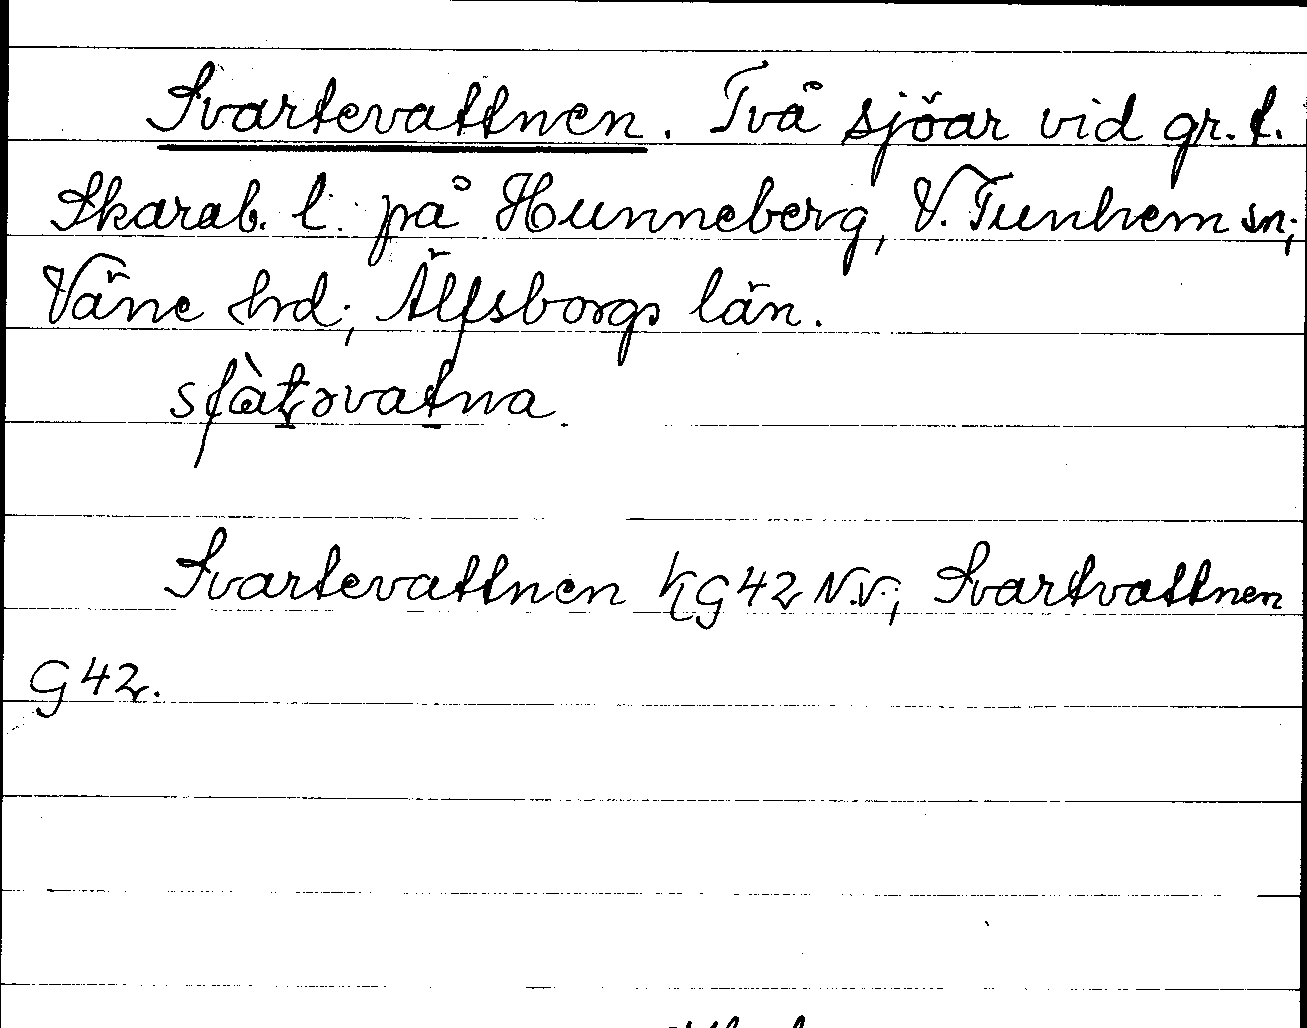 Svartevattnen. Två sjöar vid gr. t.
Skarab. l. på Hunneberg, V. Tunhem sn;
Väne hd; Älfsborgs län.
sfàt̠əvat̠na
Svartevattnen KG42 N.V.; Svartvattnen
G42.